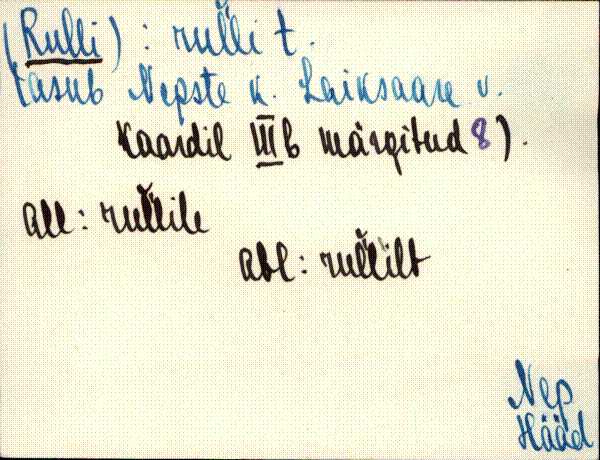 (Rulli) : rul̆l̆i t.
(asub Nepste k. Laiksaare v.
Kaardil IIIb märgitud 8).
all: rul̆l̆ile
abl: rul̆l̆ilt
Nep
Hääd